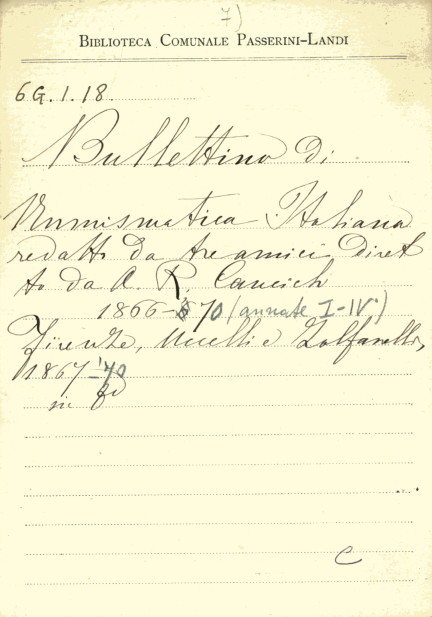 7)
BIBLIOTECA COMUNALE PASSERINI-LANDI
6G.1.18.
Bullettino di
Numismatica Italiana
redatto da tre amici, diret
to da A. R. Caucich
1866-70 (annate I-IV)
Firenze, Ucelli e Zolfanelli,
1867-'70
in fo
C